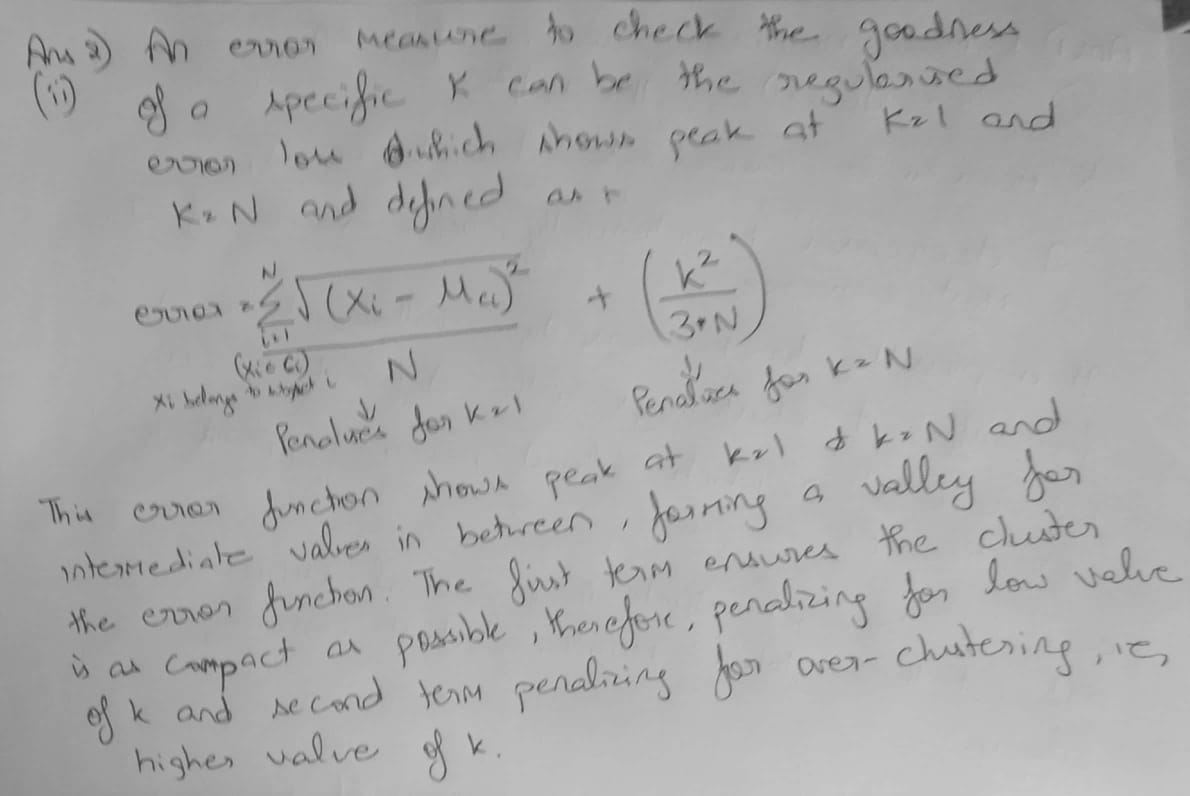 Ans 2) An error measure to check the goodness
(ii) of a specific K can be the regularised
error loss which shows peak at K=1 and
K=N and defined as
error = N Σ i=1 √(Xi - Mci)² / N + (k² / 3*N)
(Xi ∈ Ci)
Xi belongs to i
Penalises for K=1
Penalises for K=N
This error function shows peak at k=1 & k=N and
intermediate values in between, forming a valley for
the error function. The first term ensures the cluster
is as compact as possible, therefore, penalizing for low value
of k and second term penalizing for over-clustering, ie,
higher value of k.